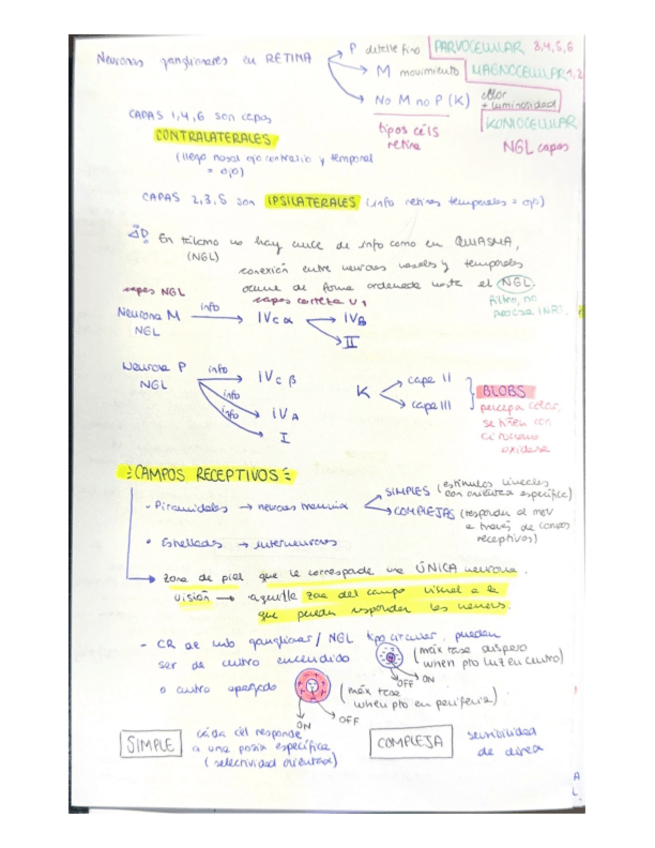 Neuronas ganglionares en RETINA
P detalle fino PARVOCELULAR 3,4,5,6
M movimiento MAGNOCELULAR 1,2
No M no P (K) color + luminosidad KONIOCELULAR
tipos céls retina
NGL capas
CAPAS 1,4,6 son capas
CONTRALATERALES
(llega nasal ojo contralio y temporal
= ojo)
CAPAS 2,3,5 son IPSILATERALES (info retinas temporales = ojo)
En tálamo no hay cruce de info como en QUIASMA,
(NGL)
conexión entre neuronas nasales y temporales
ocurre de forma ordenada hasta el NGL.
filtro, no
procesa INFO.
capas NGL
capas corteza V1
Neurona M NGL info IVc α IVB
II
Neurona P NGL info IVc β
info IVA
info I
K capa II
capa III
BLOBS
percepa color,
se tiñen con
citocromo
oxidasa
CAMPOS RECEPTIVOS
- Piramidales → neuronas
SIMPLES (estímulos lineales
con orientza específica)
COMPLEJAS (responden al mov
a través de campos
receptivos)
• Estrelladas → interneuronas
zona de piel que le corresponde una ÚNICA neurona.
visión → aquella zona del campo visual a la
que pueden responder las neurons.
- CR de ganglionar / NGL tipo circular, pueden
ser de centro encendido
(máx tasa disparo
when pto luz en centro)
OFF ON
o centro apagado
(máx tasa
when pto en periferia)
ON OFF
SIMPLE
cada cél responde
a una posia específica
(selectividad orientaza)
COMPLEJA
sensibilidad
de direca
A
L